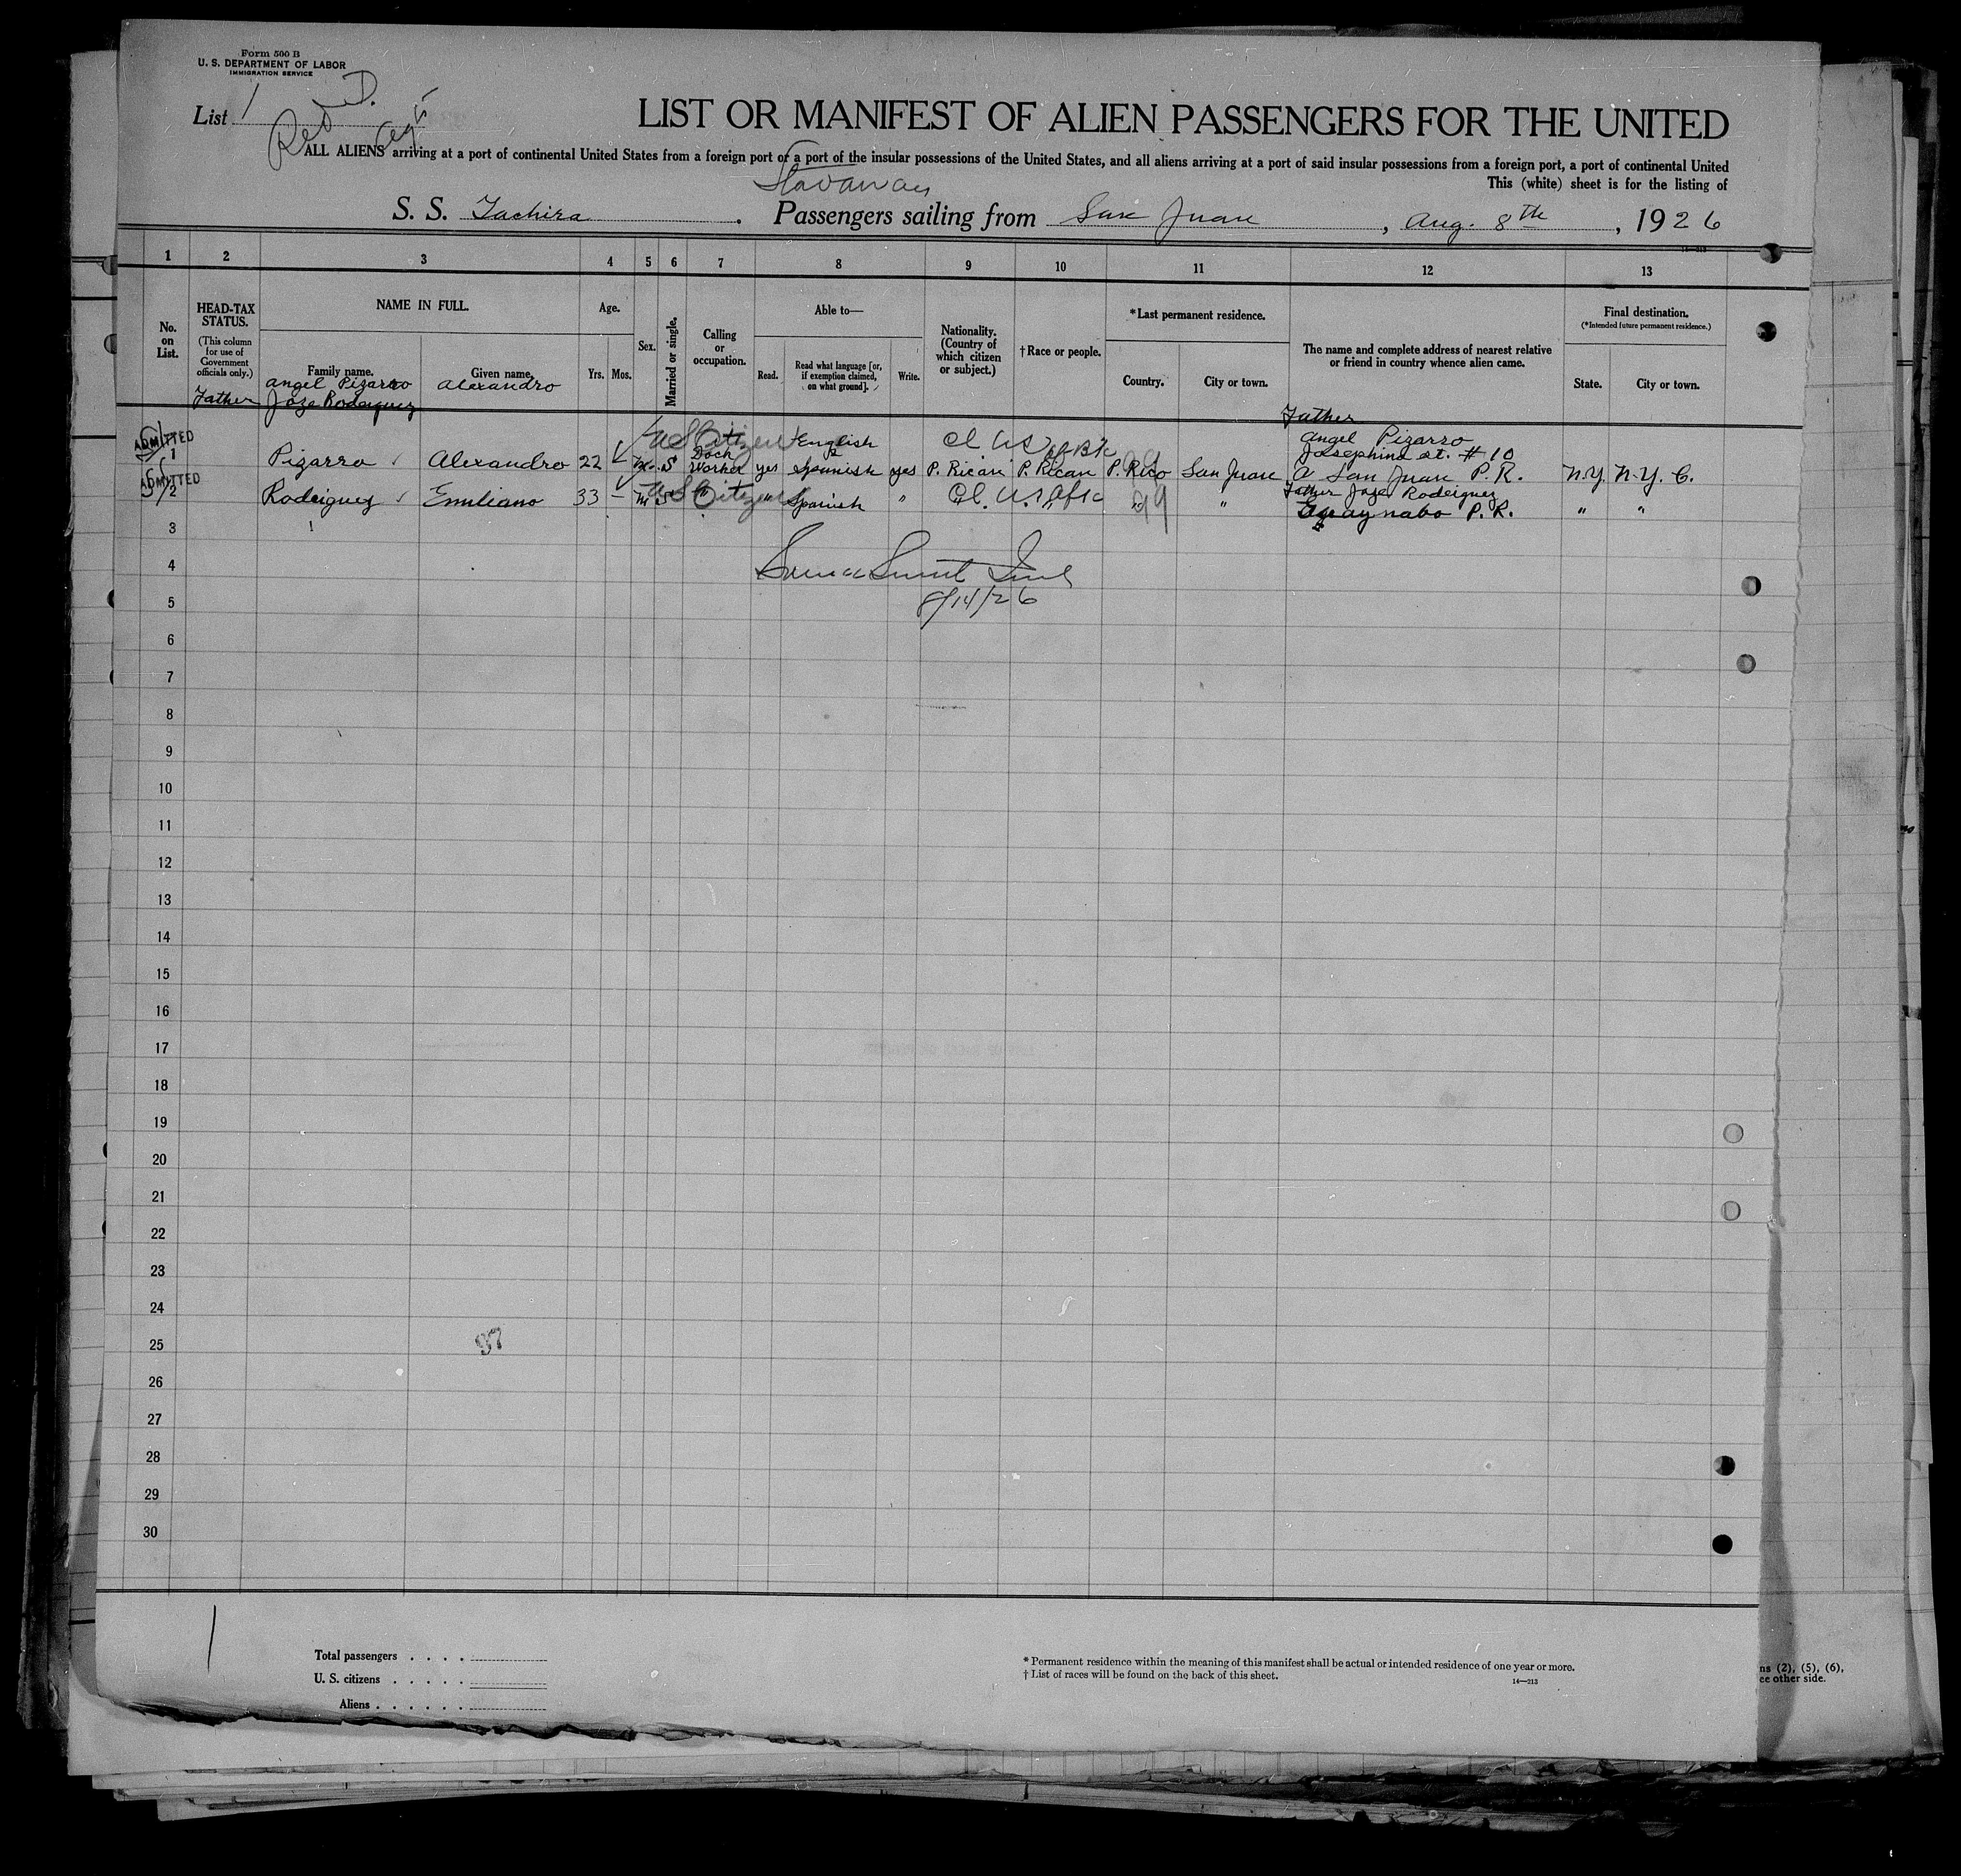 Form 500 B
U. S. DEPARTMENT OF LABOR
IMMIGRATION SERVICE
List 1
Red D.
LIST OR MANIFEST OF ALIEN PASSENGERS FOR THE UNITED
ALL ALIENS arriving at a port of continental United States from a foreign port or a port of the insular possessions of the United States, and all aliens arriving at a port of said insular possessions from a foreign port, a port of continental United
This (white) sheet is for the listing of
Stowaway
S. S. Tachira. Passengers sailing from San Juan, Aug. 8th, 1926
14—213
1 2 3 4 5 6 7 8 9 10 11 12 13
No. on List.
HEAD-TAX STATUS.
(This column for use of Government officials only.)
NAME IN FULL.
Family name.
Given name.
Age.
Yrs. Mos.
Sex.
Married or single.
Calling or occupation.
Able to—
Read.
Read what language [or, if exemption claimed, on what ground].
Write.
Nationality. (Country of which citizen or subject.)
† Race or people.
*Last permanent residence.
Country.
City or town.
The name and complete address of nearest relative or friend in country whence alien came.
Final destination.
(*Intended future permanent residence.)
State.
City or town.
Angel Pizarro Alexandro
Father Joze Rodeiguez
Father
Angel Pizarro
Josephina st. # 10
ADMITTED
US Citizen
English
1 Pizarro Alexandro 22 m S Dock Worker yes Spanish yes P. Rican P. Rican P. Rico San Juan San Juan P. R. N.Y. N.Y. C.
ADMITTED
US Citizen
Father Joze Rodeiguez
2 Rodeiguez Emiliano 33 — m S " " Spanish " " " " " Guaynabo P. R. " "
3
4
8/14/26
5
6
7
8
9
10
11
12
13
14
15
16
17
18
19
20
21
22
23
24
25
97
26
27
28
29
30
1
Total passengers
U. S. citizens
Aliens
* Permanent residence within the meaning of this manifest shall be actual or intended residence of one year or more.
† List of races will be found on the back of this sheet.
14—213
ns (2), (5), (6),
ce other side.